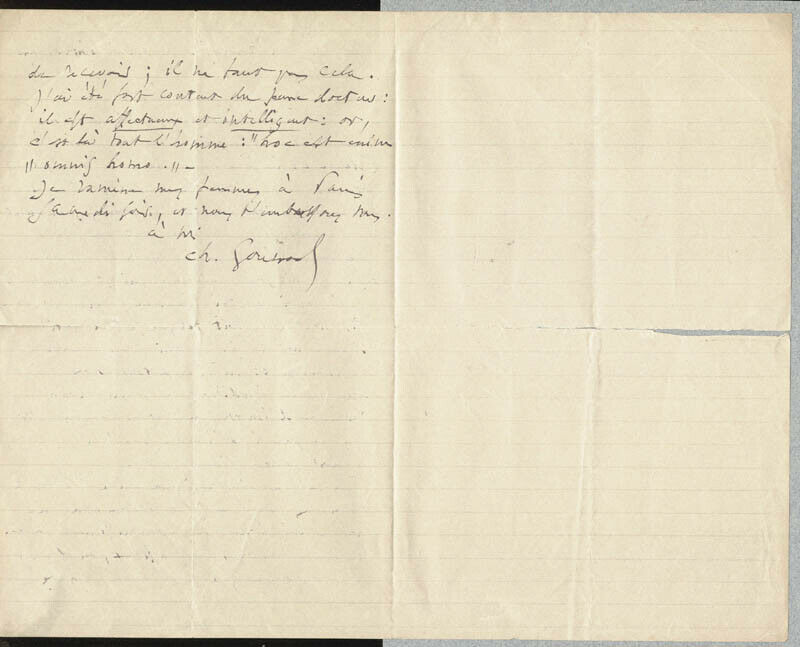 de recevoir ; il ne faut pas cela.
J'ai été fort content du jeune docteur :
il est affectueux et intelligent : or,
c'est là tout l'homme : "hoc est enim
"omnis homo." –
Je ramène mes femmes à Paris
Samedi soir, et nous t'embrassons tous.
à toi
Ch. Gounod